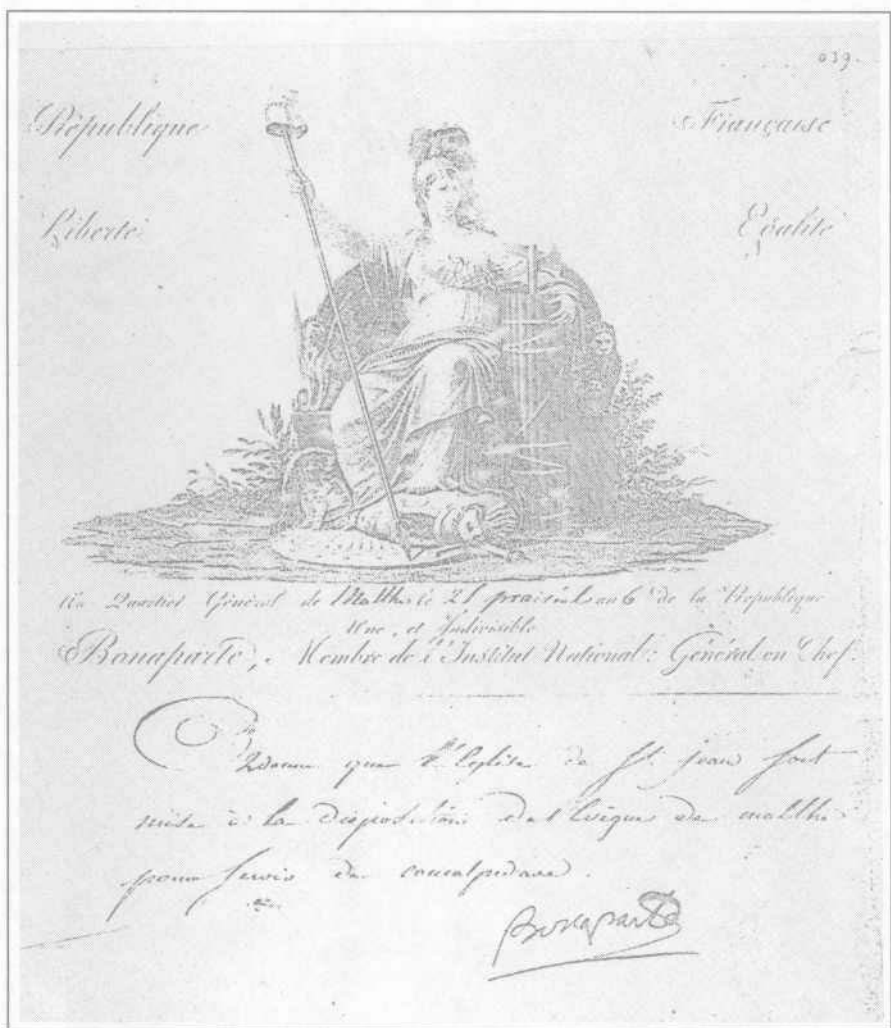 039.
République Française
Liberté Egalité
Au Quartier Général de Malthe le 25 prairial an 6e de la République
Une, et Indivisible
Bonaparte, Membre de l'Institut National: Général en Chef.
que l'Eglise de St. jean soit
mise à la disposition de l'Evêque de malthe
pour servir de
Bonaparte